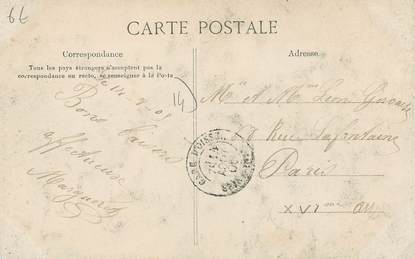 66
CARTE POSTALE
Correspondance
Tous les pays étrangers n'acceptent pas la
correspondance au recto, se renseigner à la Poste
Adresse.
14
Bons baisers
affectueux
Marguerite
Mr & Mme Léon
68 Rue Lafontaine
Paris
XVIme arr